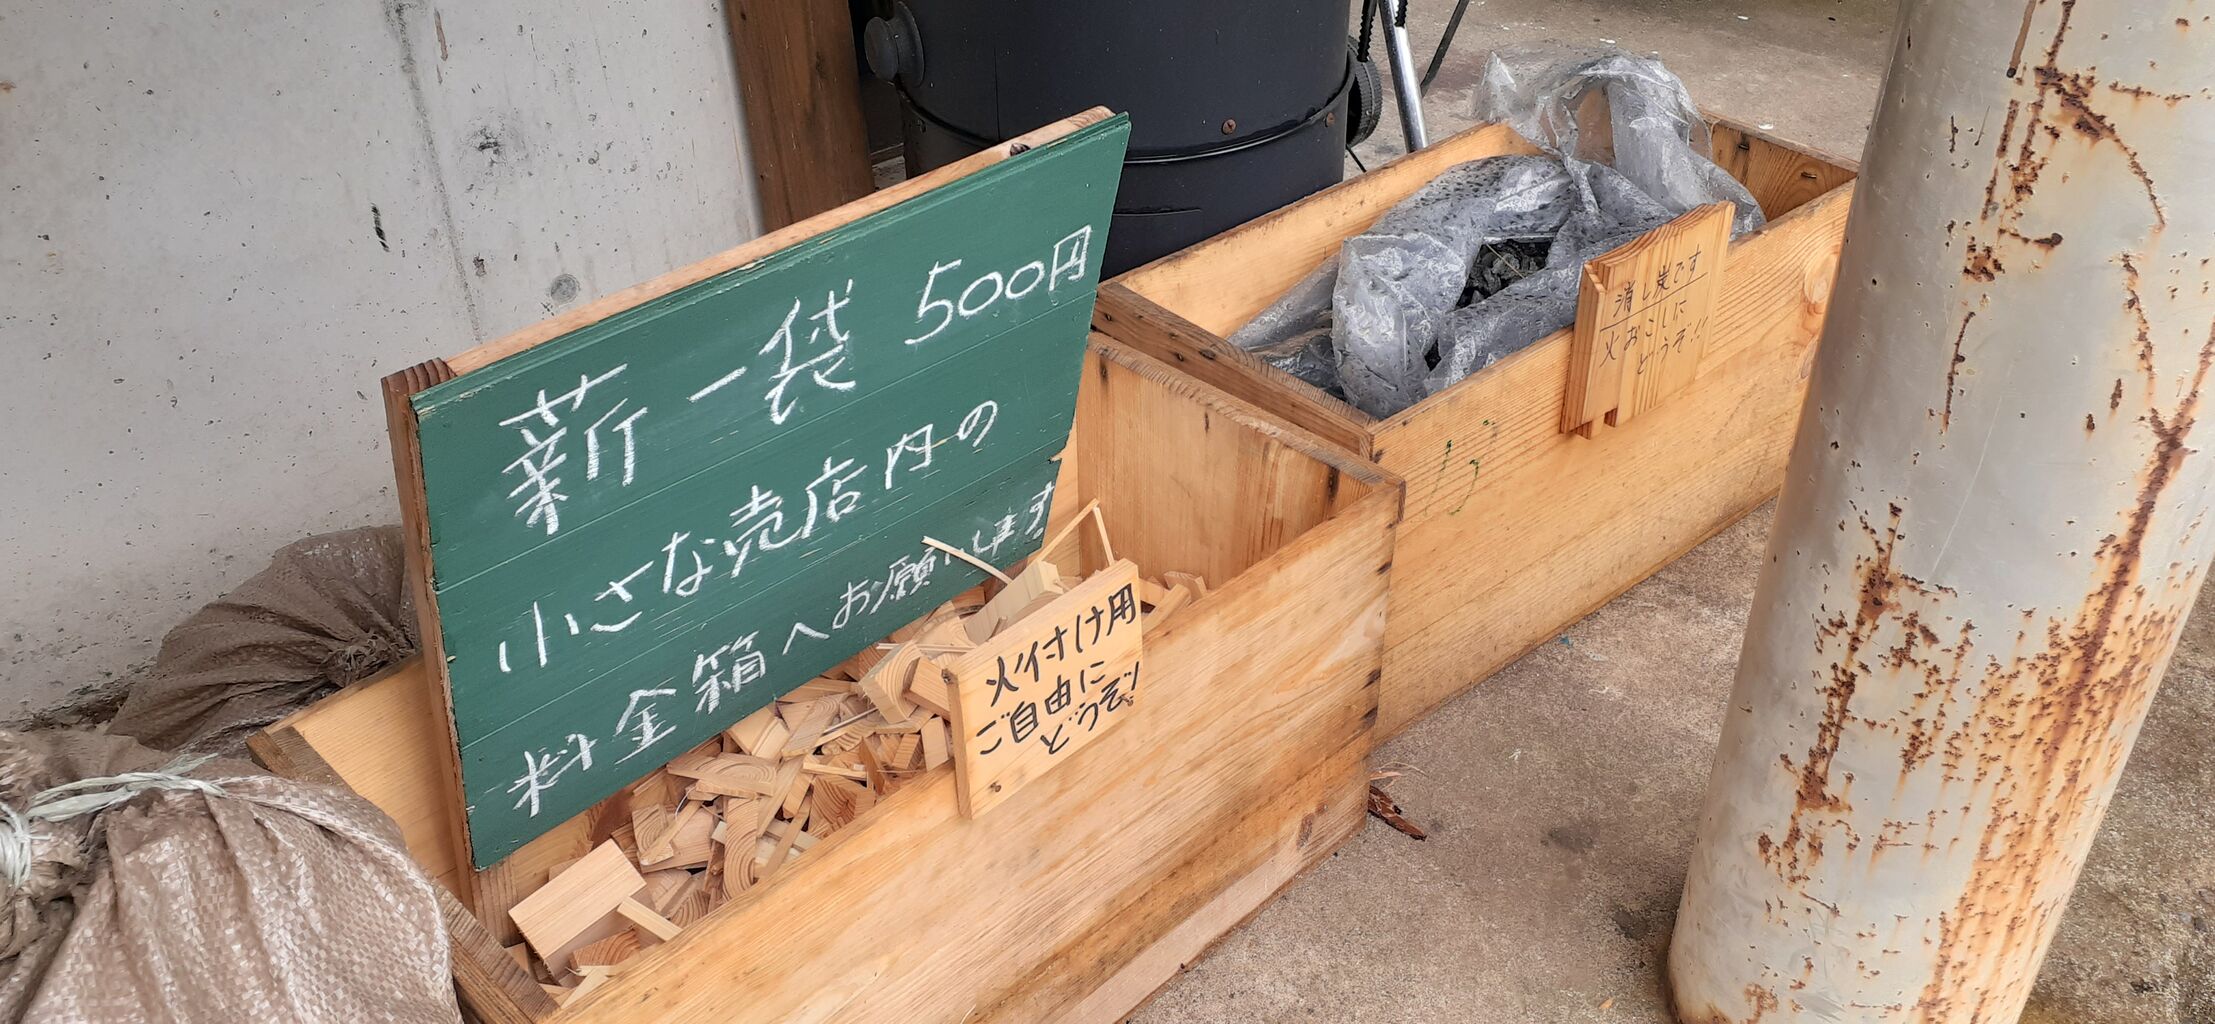 薪一袋 500円
小さな売店内の
料金箱へお願いします
火付け用
ご自由に
どうぞ!!
消し炭です
火おこしに
どうぞ!!